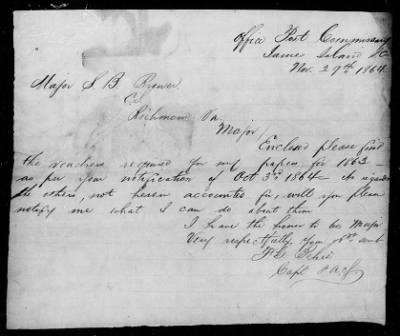 Office Post Commissary
James Island S.C.
Nov. 29th 1864
Major S. B. Brewer
Richmond Va
Major
Enclosed please find
the vouchers required for my papers for 1863 -
as per your notification of Oct 3rd 1864 - As regards
the others, not herein accounted for, will you please
notify me what I can do about them
I have the honor to be Major
Very respectfully your obt svt
Capt